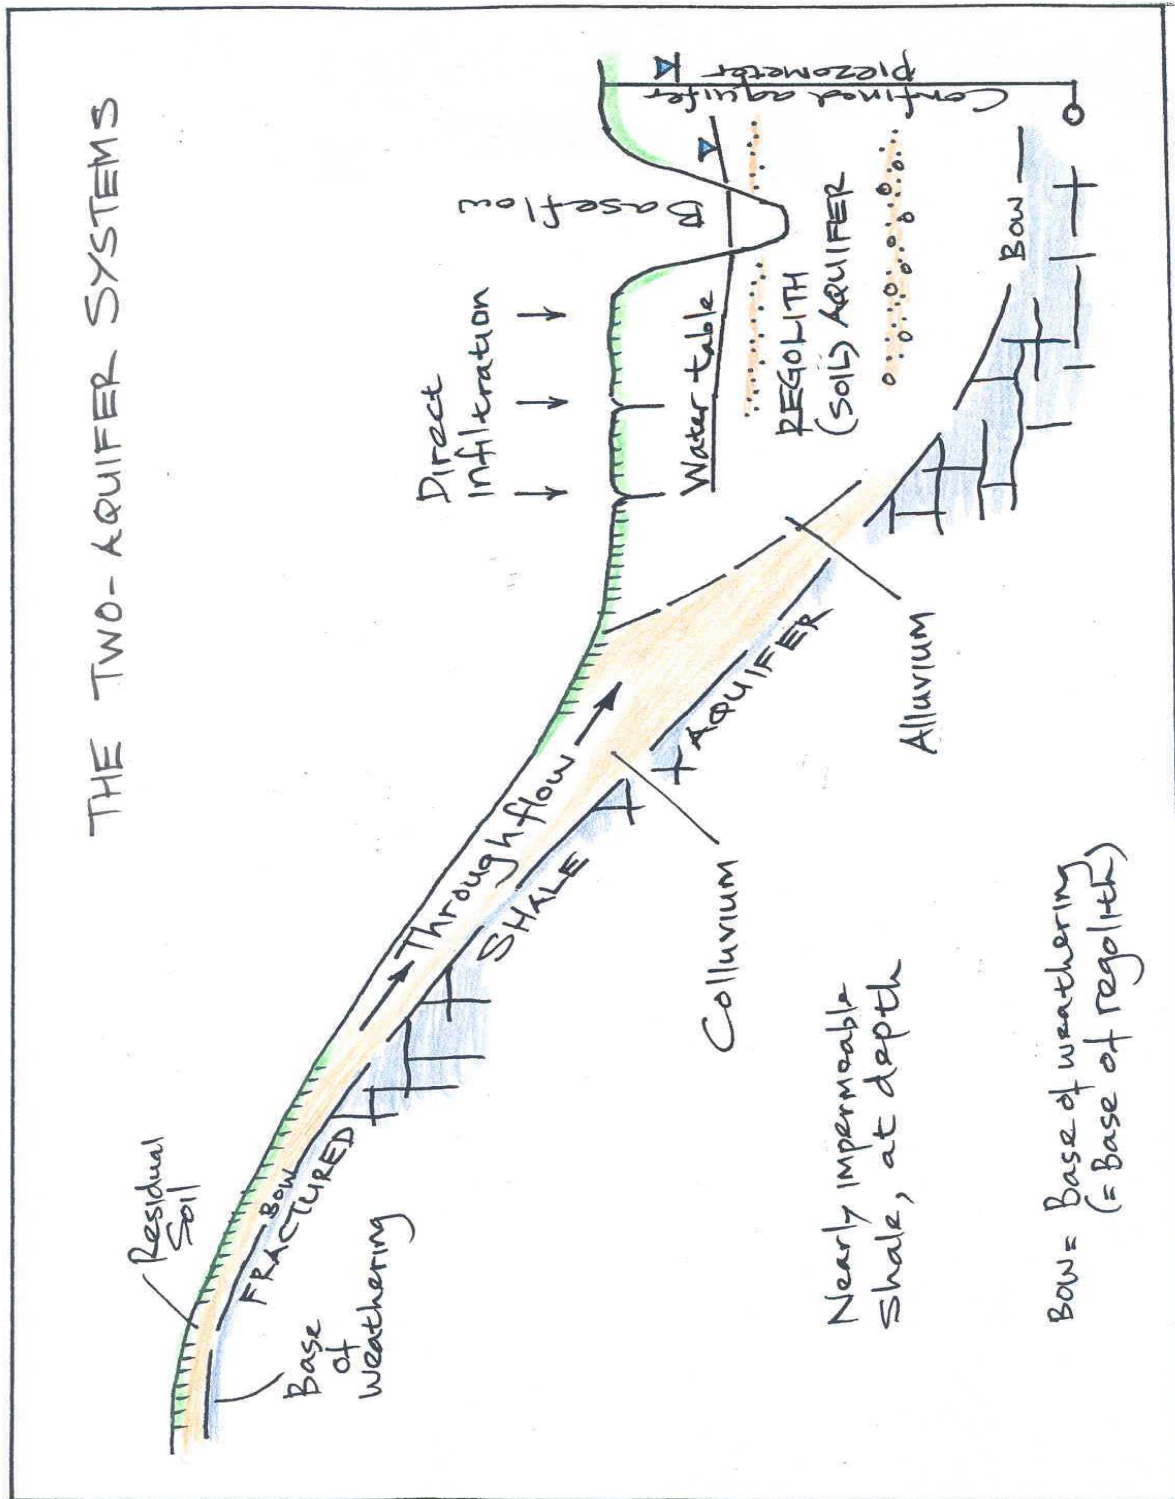 THE TWO-AQUIFER SYSTEMS
Residual
Soil
Base
of
weathering
BOW
FRACTURED
SHALE
AQUIFER
Throughflow
Colluvium
Alluvium
Direct
infiltration
Baseflow
Water table
REGOLITH
(SOIL) AQUIFER
Confined aquifer
piezometer
BOW
Nearly impermeable
Shale, at depth
BOW = Base of weathering
(= Base of regolith)